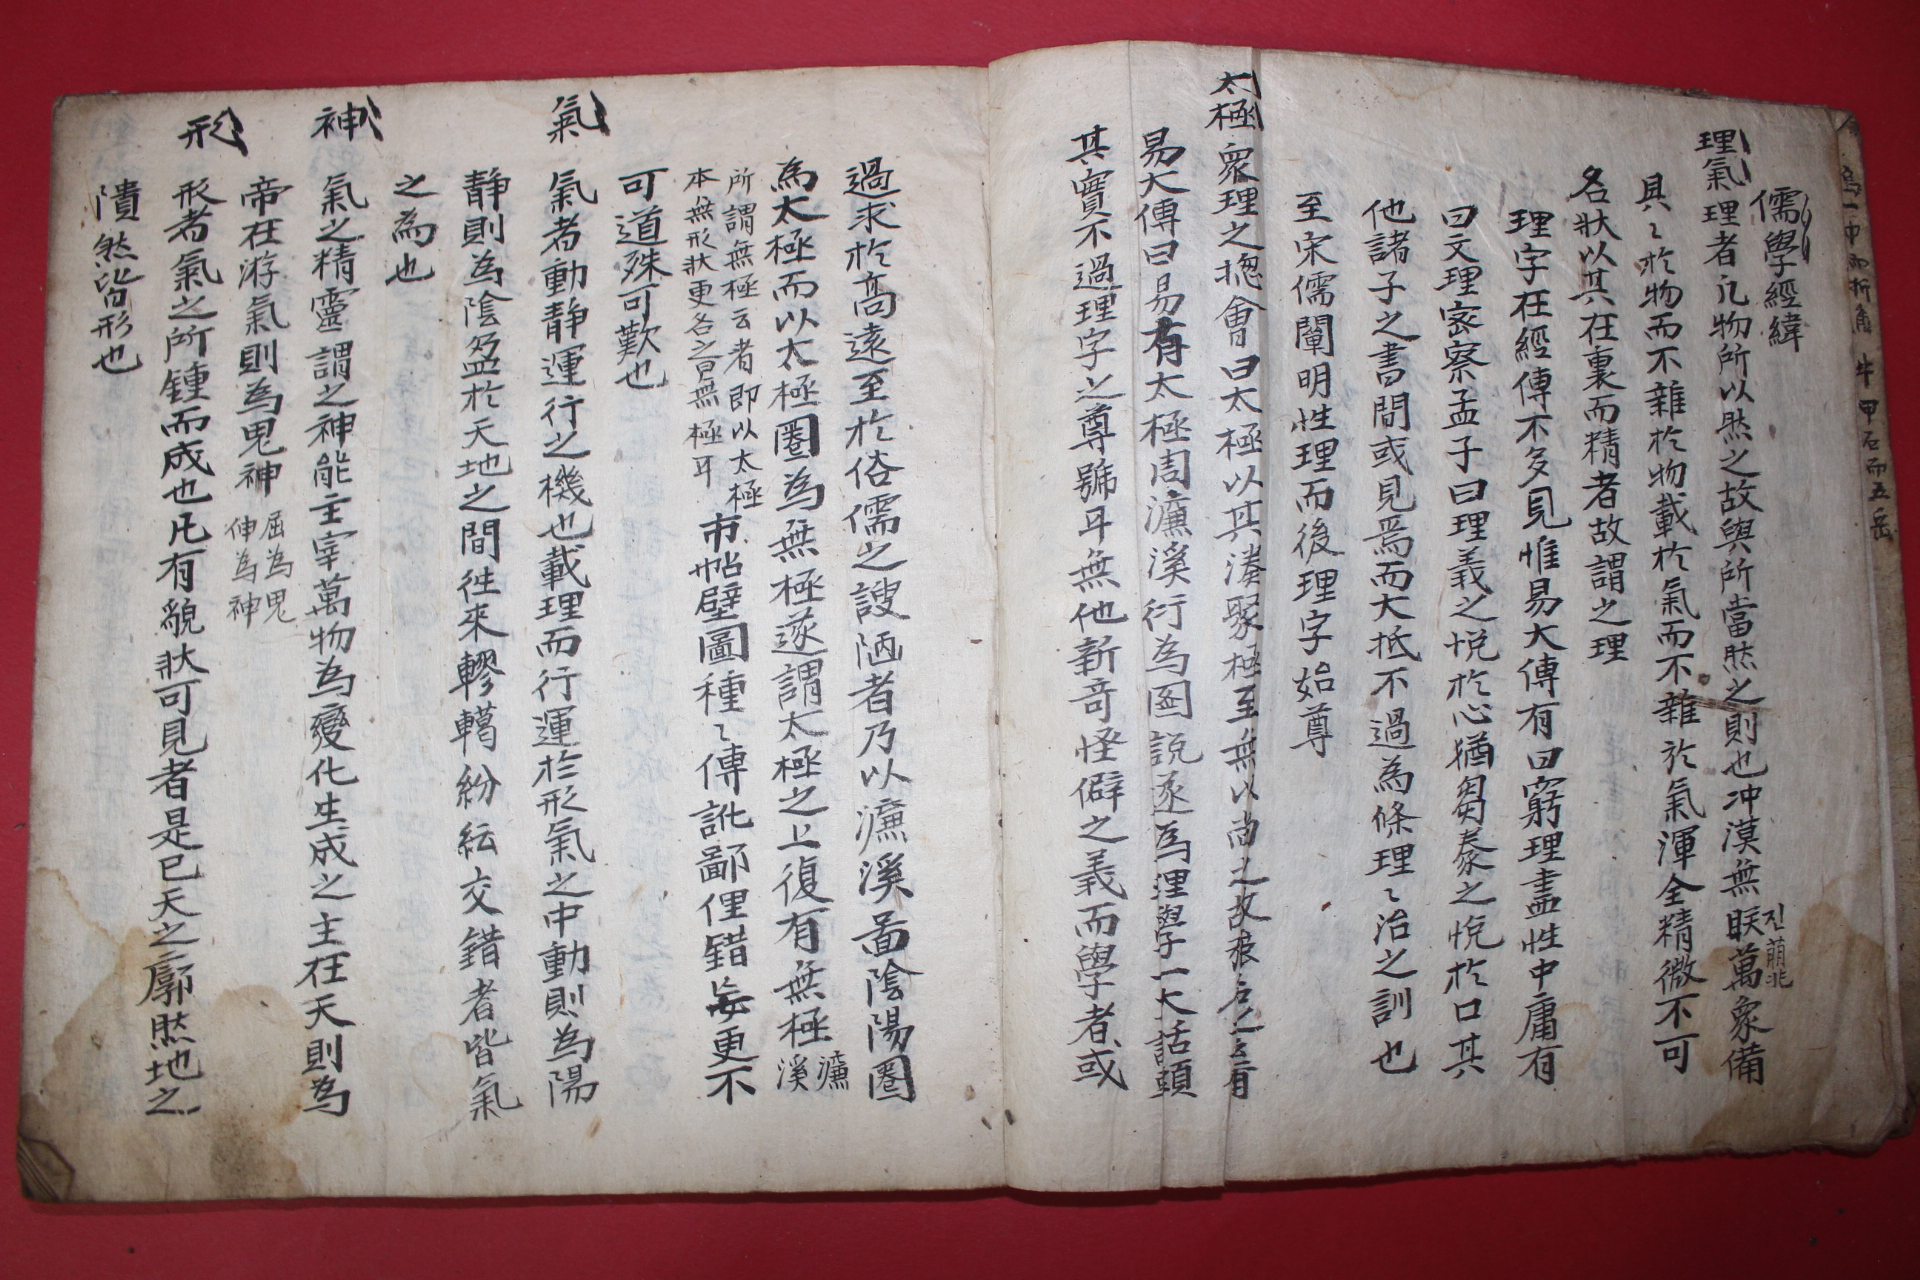 儒學經緯
理氣 理者凡物所以然之故與所當然之則也冲漠無眹진萬象備
萌兆
具〻於物而不雜於物載於氣而不雜於氣渾全精微不可
名狀以其在裏而精者故謂之理
理字在經傳不多見惟易大傳有曰窮理盡性中庸有
曰文理密察孟子曰理義之悅於心猶芻豢之悅於口其
他諸子之書間或見焉而大抵不過為條理〻治之訓也
至宋儒闡明性理而後理字始尊
太極 衆理之揔會曰太極以其湊聚極至無以尚之故
易大傳曰易有太極周濂溪衍為圖說遂為理學一大話頭
其實不過理字之尊號耳無他新奇怪僻之義而學者或
過求於高遠至於俗儒之謏陋者乃以濂溪啚陰陽圈
為太極而以太極圈為無極遂謂太極之上復有無極濂
溪
所謂無極云者即以太極
本無形狀更名之曰無極耳
市帖壁圖種〻傳訛鄙俚錯 更不
可道殊可歎也
氣 氣者動靜運行之機也載理而行運於形氣之中動則為陽
靜則為陰盈於天地之間徃來轇轕紛紜交錯者皆氣
之為也
神 氣之精靈謂之神能主宰萬物為變化生成之主在天則為
帝在游氣則為鬼神屈為鬼
伸為神
形 形者氣之所鍾而成也凡有貌狀可見者是已天之廓然地之
隤然皆形也